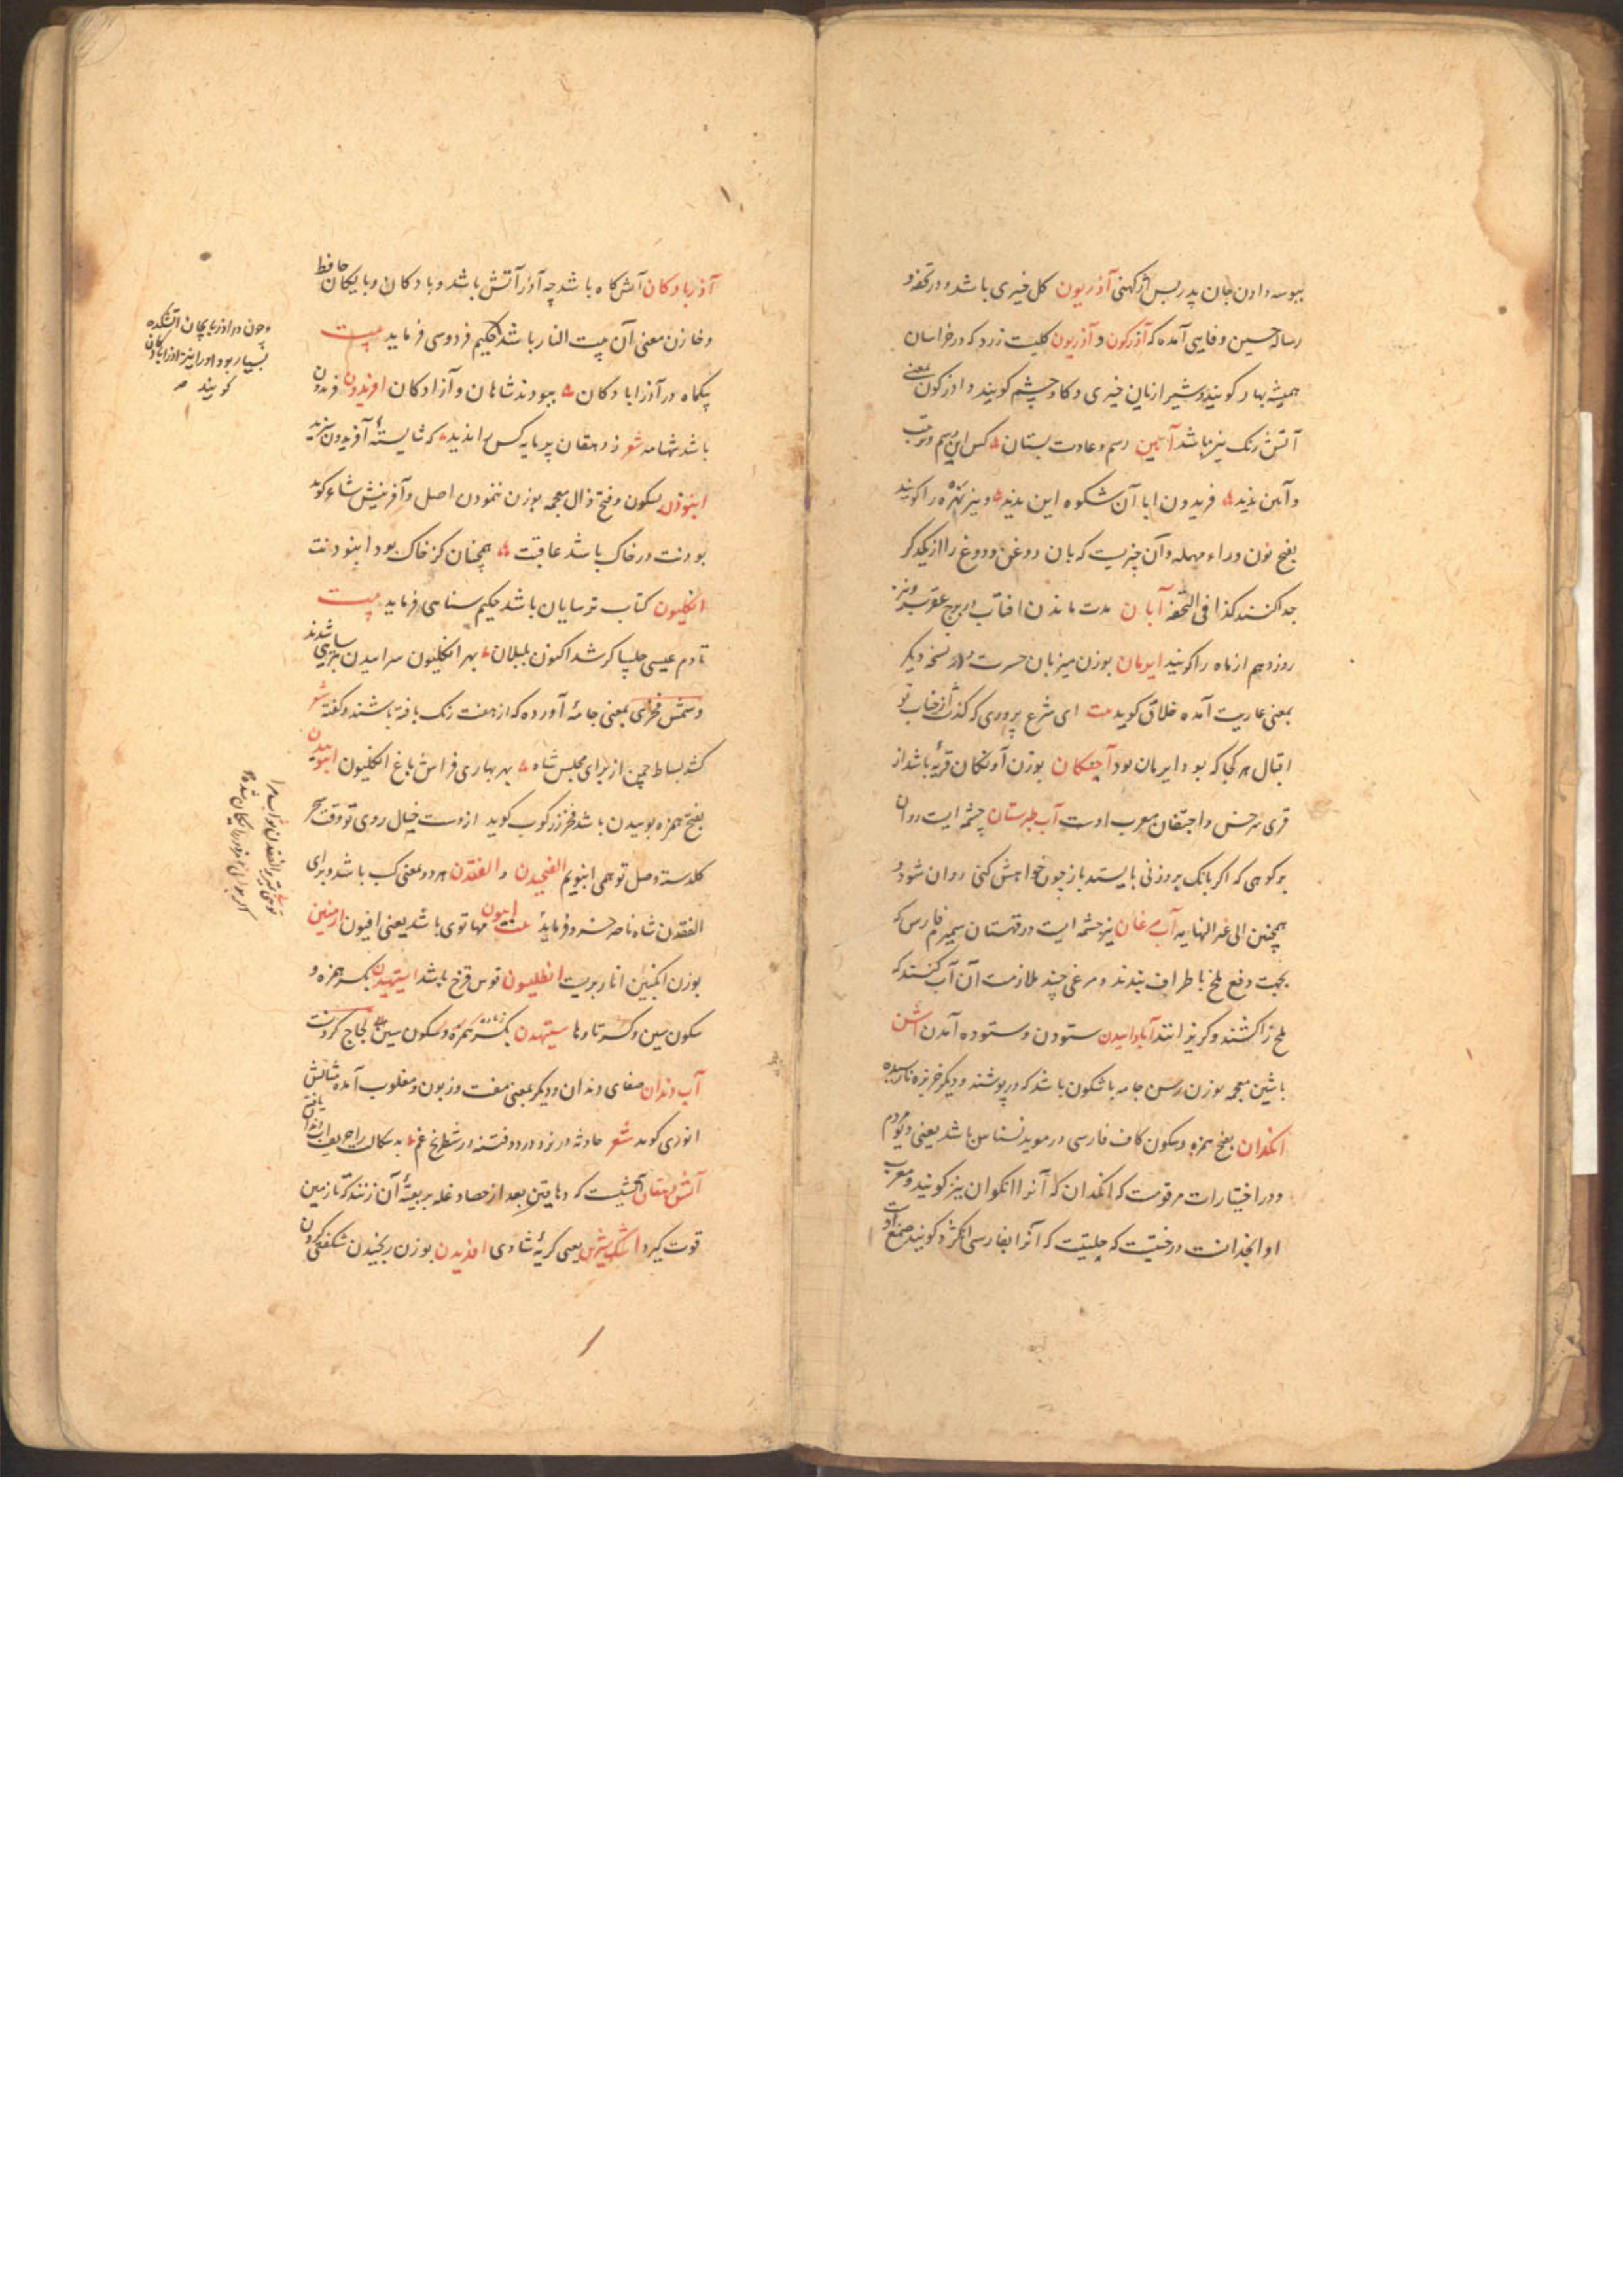 ببوسه دادن جان پدر بس اژکهنی آذریون کل خیری باشد و در تحفه و
رساله حسین وفایی آمده که آذرکون و آذریون کلیست زرد که در خراسان
همیشه بهار کویند و شیرازیان خیری و کاوچشم کویند و اذرکون بمعنی
آتش رنک نیز باشد آیین رسم و عادت بستان کس این رسم و ترتیب
و آیین ندید فریدون ابا آن شکوه این ندید و نیز نهره را کویند
بفتح نون و راء مهمله و آن چیزیست که بان روغن و دوغ را از یکدیکر
جدا کنند کذا فی التحفه آبان مدت ماندن افتاب در برج عقرب و نیز
روز دهم از ماه را کویند ایرمان بوزن میزبان حسرت و در نسخه دیکر
بمعنی عاریت آمده خلاق کوید بیت ای شرع پروری که کذشت از جناب تو
اقبال هر کجا که بود ایرمان بود آجنکان بوزن آونکان قریهٔ باشد از
قری سرخس و اجنقان معرب اوست آب طبرستان چشمه ایست روان
بر کوهی که اکر بانک بروزنی بایستد باز چون خواهش کنی روان شود و
همچنین الی غیر النهایه آب مرغان نیز چشمه ایست در قهستان سمیرم فارس که
بجهت دفع ملخ باطراف ببرند و مرغی چند ملازمت آن آب کنند که
ملخ را کشند و کریزانند آبادانیدن ستودن و ستوده آمدن اشن
باشین معجمه بوزن رسن جامه باشکون باشد که در پوشند و دیکر خربزه نارسیده
انکدان بفتح همزه و سکون کاف فارسی در موید نسناس باشد یعنی دیو مردم
و در اختیارات مرقومست که انکدان که آنرا انکوان نیز کویند و معرب
او انجدانست درختیست که حلتیت که آنرا بفارسی انکژد کویند صمغ اوست
آذربادکان آتش کاه باشد چه آذر آتش باشد و بادکان و بایکان حافظ
و خازن معنی آن بیت النار باشد حکیم فردوسی فرماید بیت
یکماه در آذرابادکان ببودند شاهان و آزادکان افریدون فریدون
باشد شهنامه شعر ز دهقان پرمایه کس را ندید که شایستهٔ آفریدون سزید
ابنوذن بسکون و فتح ذال معجمه بوزن ننمودن اصل و آفرینش شاعر کوید
بودنت در خاک باشد عاقبت همچنان کز خاک بود ابنودنت
انکلیون کتاب ترسایان باشد حکیم سنایی فرماید بیت
تا دم عیسی چلیپا کر شد اکنون بلبلان بهر انکلیون سراییدن بترسایی شدند
و شمس فخری بمعنی جامهٔ آورده که از هفت رنک بافته باشند و کفته شعر
کشد بساط چمن از برای مجلس شاه بهر بهاری فراش باغ انکلیون انبوییدن
بفتح همزه بوییدن باشد فخر زرکوب کوید از دست خیال روی تو وقت سحر
کلدسته وصل تو همی انبویم الفنجیدن و الفغدن هر دو بمعنی کسب باشد و برای
الفغدن شاه ناصر خسرو فرماید بیت ابیون مهاتوی باشد یعنی افیون ارمنین
بوزن انکبین انار بریست انطلیسون قوس قزح باشد استیهیدن بکسر همزه و
سکون سین و کسر تا و ها ستیهیدن بکسر همزه و سکون سین لجاج کردنست
آب دندان صفای دندان و دیکر بمعنی مفت و زبون و مغلوب آمده مثالش
انوری کوید شعر حادثه در نرد درد و فتنه در شطرنج غم بدسکالت را حریف اب دندان یافته
آتش دهقان آتشیست که دهاقین بعد از حصاد غله بر بقیهٔ آن زنند که تا زمین
قوت کیرد اشک شیرین یعنی کریهٔ شادی افدیدن بوزن رنجیدن شکفتی کردن
و چون در اذربایجان آتشکده
بسیار بود او را نیز آذرابادکان
کویند